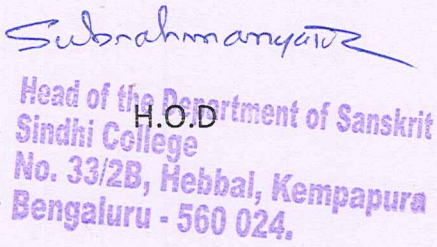 Subrahmanya
Head of the Department of Sanskrit
H.O.D
Sindhi College
No. 33/2B, Hebbal, Kempapura
Bengaluru - 560 024.